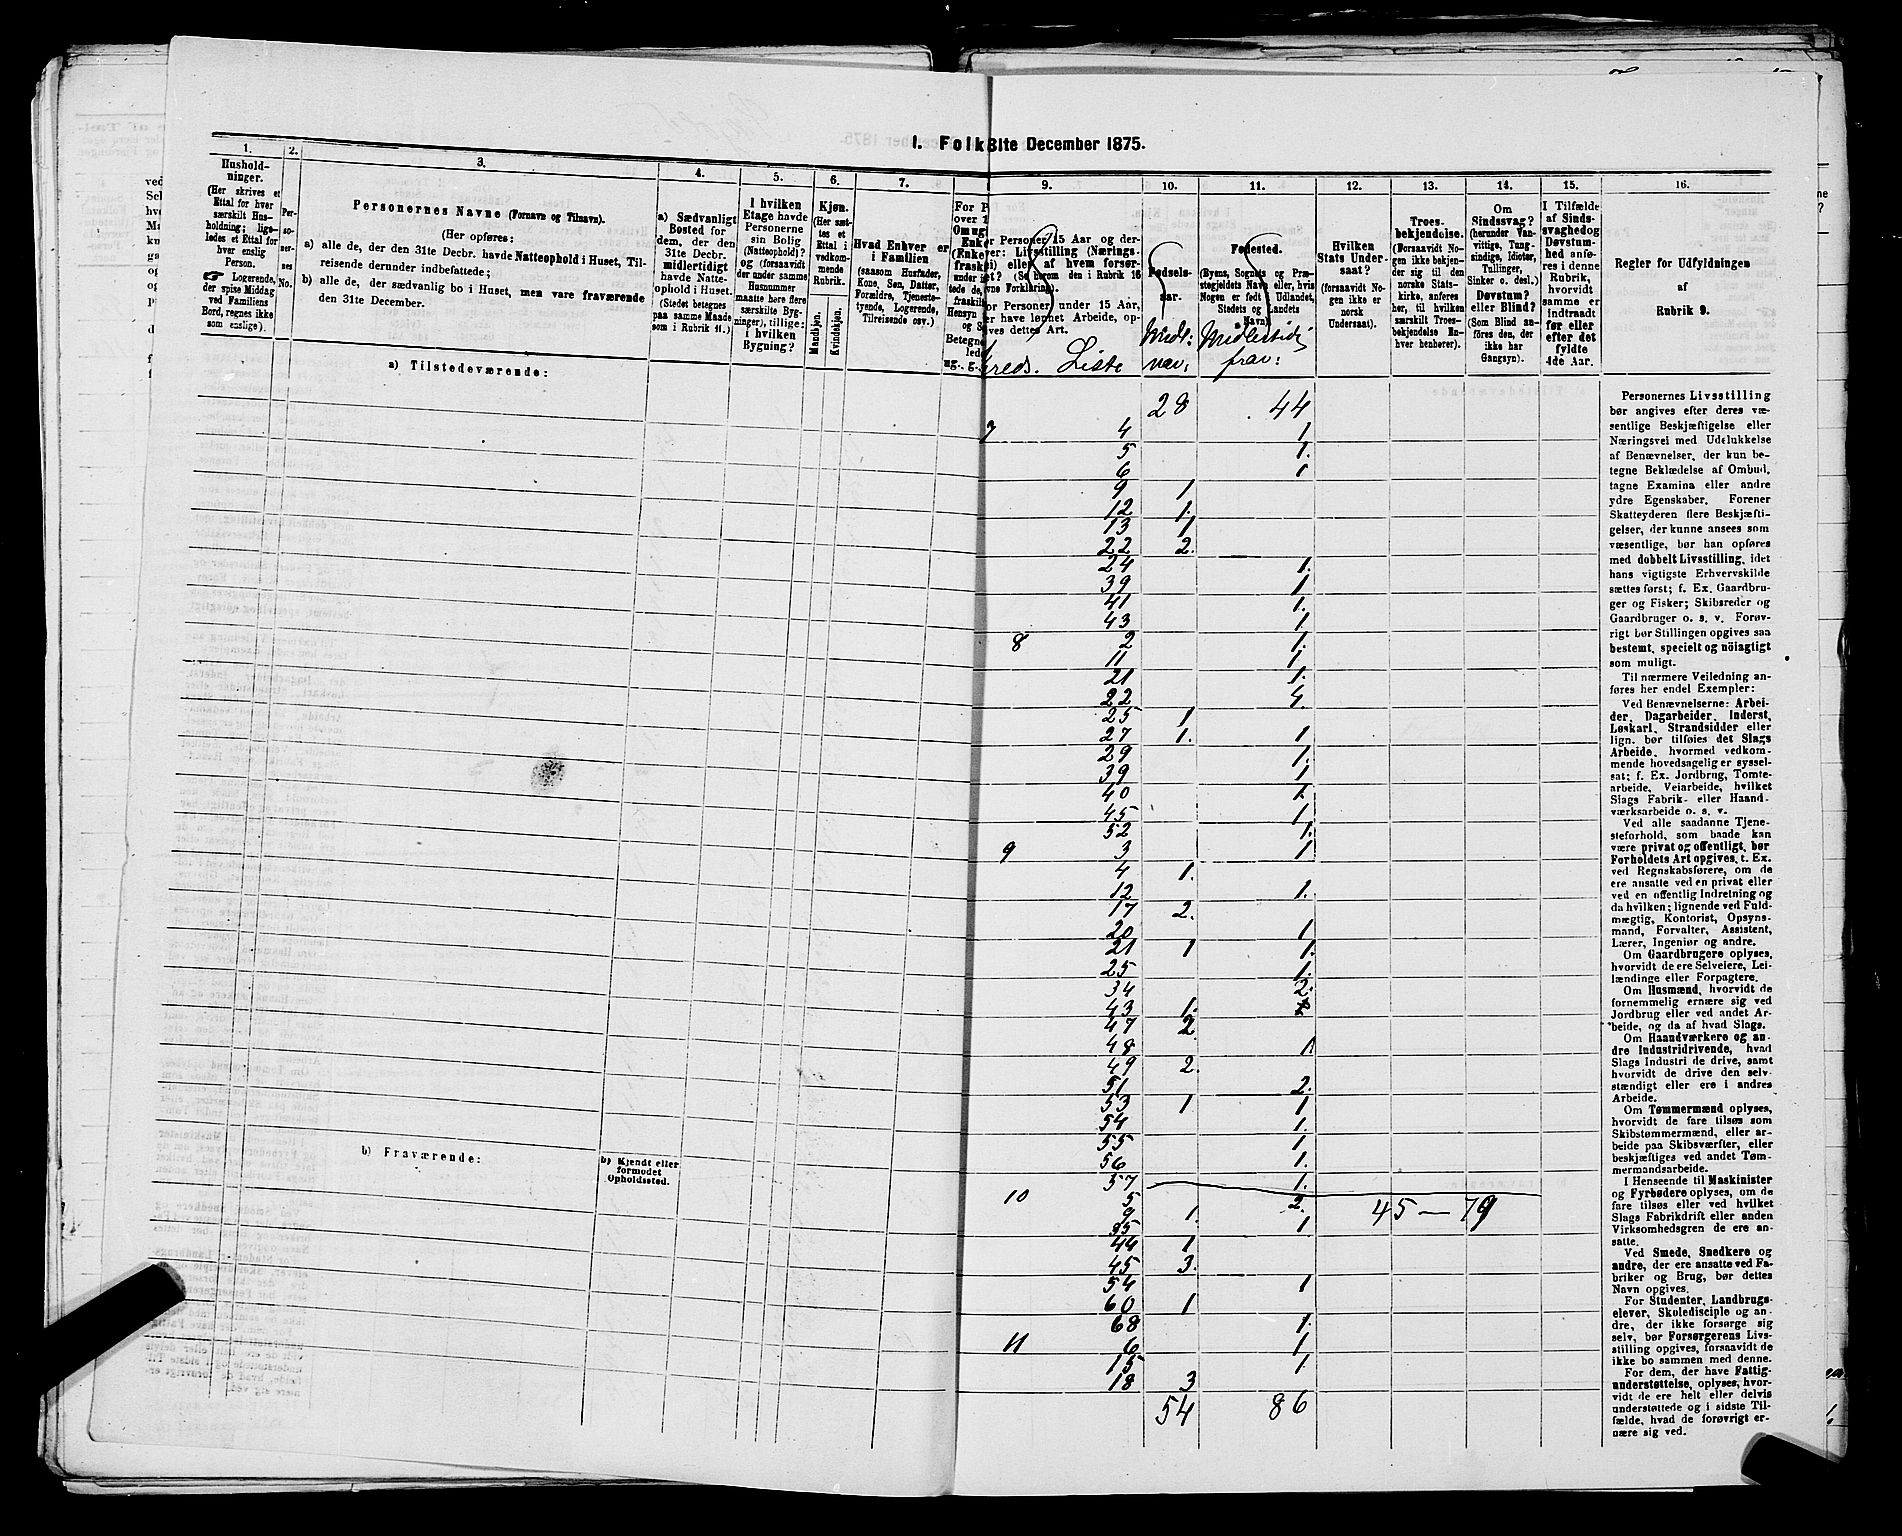 I. Folk 31te December 1875.
1.
2.
3.
4.
5.
6.
7.
9.
10.
11.
12.
13.
14.
15.
16.
Hushold-
ninger.
(Her skrives et
Ettal for hver
særskilt Hus-
holdning; lige-
ledes et Ettal for
hver enslig
Person.
☞ Logerende,
der spise Middag
ved Familiens
Bord, regnes ikke
som enslige).
Per-
so-
ner-
nes
No.
Personernes Navne (Fornavn og Tilnavn).
(Her opføres:
a) alle de, der den 31te Decbr. havde Natteophold i Huset, Til-
reisende derunder indbefattede;
b) alle de, der sædvanlig bo i Huset, men vare fraværende
den 31te December.
a) Sædvanligt
Bosted for
dem, der den
31te Decbr.
midlertidigt
havde Natte-
ophold i Huset.
(Stedet betegnes
paa samme Maade
som i Rubrik 11.)
I hvilken
Etage havde
Personerne
sin Bolig
(Natteophold)?
og (forsaavidt
der under samme
Husnummer
maatte høre flere
særskilte Byg-
ninger), tillige:
i hvilken
Bygning?
Kjøn.
(Her sæt-
tes et
Ettal i
vedkom-
mende
Rubrik.
Mandkjøn.
Kvindekjøn.
Hvad Enhver er
i Familien
(saasom Husfader,
Kone, Søn, Datter,
Forældre, Tjeneste-
tyende, Logerende,
Tilreisende osv.)
For P
over 1
Omug
Enke
(Enke
frask
under
tede de,
fraskil
Hensyn
og S
Betegne
lede
ug., g.,
er Personer 15 Aar og der-
ver: Livsstilling (Nærings-
ei) eller af hvem forsør-
get. (Se herom den i Rubrik 16
givne Forklaring).
or Personer under 15 Aar,
er have lønnet Arbeide, op-
gives dettes Art.
Fødsels-
aar.
Fødested.
(Byens, Sognets og Præ-
stegjeldets Navn eller, hvis
Nogen er født i Udlandet,
Stedets og Landets
Navn).
Hvilken
Stats Under-
saat?
(forsaavidt No-
gen ikke er
norsk
Undersaat).
Troes-
bekjendelse.
(Forsaavidt No-
gen ikke bekjen-
der sig til den
norske Stats-
kirke, anføres
her, til hvilken
særskilt Troes-
bekjendelse En-
hver henhører).
Om
Sindssvag?
(herunder Van-
vittige, Tung-
sindige, Idioter,
Tullinger,
Sinker o. desl.)
Døvstum?
eller Blind?
(Som Blind an-
føres den, der
ikke har
Gangsyn).
I Tilfælde
af Sinds-
svaghed og
Døvstum-
hed anfø-
res i denne
Rubrik,
hvorvidt
samme er
indtraadt
før eller
efter det
fyldte
4de Aar.
Regler for Udfyldningen
af
Rubrik 9.
Kreds. Liste
Midl:
vær:
Midlertidi
frav:
a) Tilstedeværende:
28 44
7 4 1
5 1.
6 1
9 1
12 1.
13 1
22 2.
24 1.
39 1
41 1.
43 1.
8 2 1.
11 1.
21 1.
22 4.
25 1
27 1. 1
29 1.
39 1
40 1.
45 1
52 1.
9 3 1
4 1.
12 1.
17 2.
20 1
21 1 1.
25 1.
34 2.
43 1.
47 2
48 1.
49 2.
51 2.
53 1 1
54 1.
55 1
56 1.
57 1.
10 5 2.
9 1.
35 1
44 1
45 3.
54 1
60 1
68 1.
11 6 1
15 1.
18 3
54 86
45 — 79
b) Fraværende:
b) Kjendt eller
formodet
Opholdssted.
Personernes Livsstilling
bør angives efter deres væ-
sentlige Beskjæftigelse eller
Næringsvei med Udelukkelse
af Benævnelser, der kun be-
tegne Beklædelse af Ombud,
tagne Examina eller andre
ydre Egenskaber. Forener
Skatteyderen flere Beskjæfti-
gelser, der kunne ansees som
væsentlige, bør han opføres
med dobbelt Livsstilling, idet
hans vigtigste Erhvervskilde
sættes først; f. Ex. Gaardbru-
ger og Fisker; Skibsreder og
Gaardbruger o. s. v. Forøv-
rigt bør Stillingen opgives saa
bestemt, specielt og nöiagtigt
som muligt.
Til nærmere Veiledning an-
føres her endel Exempler:
Ved Benævnelserne: Arbei-
der, Dagarbeider, Inderst,
Løskarl, Strandsidder eller
lign. bør tilføies det Slags
Arbeide, hvormed vedkom-
mende hovedsagelig er syssel-
sat; f. Ex. Jordbrug, Tomte-
arbeide, Veiarbeide, hvilket
Slags Fabrik- eller Haand-
værksarbeide o. s. v.
Ved alle saadanne Tjene-
steforhold, som baade kan
være privat og offentligt, bør
Forholdets Art opgives, t. Ex.
ved Regnskabsførere, om de
ere ansatte ved en privat eller
ved en offentlig Indretning og
da hvilken; lignende ved Fuld-
mægtig, Kontorist, Opsyns-
mand, Forvalter, Assistent,
Lærer, Ingeniør og andre.
Om Gaardbrugere oplyses,
hvorvidt de ere Selveiere, Lei-
lændinge eller Forpagtere.
Om Husmænd, hvorvidt de
fornemmelig ernære sig ved
Jordbrug eller ved andet Ar-
beide, og da af hvad Slags.
Om Haandværkere og an-
dre Industridrivende, hvad
Slags Industri de drive, samt
hvorvidt de drive den selv-
stændigt eller ere i andres
Arbeide.
Om Tømmermænd oplyses,
hvorvidt de fare tilsøs som
Skibstømmermænd, eller ar-
beide paa Skibsværfter, eller
beskjæftiges ved andet Tøm-
mermandsarbeide.
I Henseende til Maskinister
og Fyrbødere oplyses, om de
fare tilsøs eller ved hvilket
Slags Fabrikdrift eller anden
Virksomhedsgren de ere an-
satte.
Ved Smede, Snedkere og
andre, der ere ansatte ved Fa-
briker og Brug, bør dettes
Navn opgives.
For Studenter, Landbrugs-
elever, Skoledisciple og an-
dre, der ikke forsørge sig
selv, bør Forsørgerens Livs-
stilling opgives, forsaavidt de
ikke bo sammen med denne.
For dem, der have Fattig-
understøttelse, oplyses, hvor-
vidt de ere helt eller delvis
understøttede og i sidste Til-
fælde, hvad de forøvrigt er-
nære sig ved.